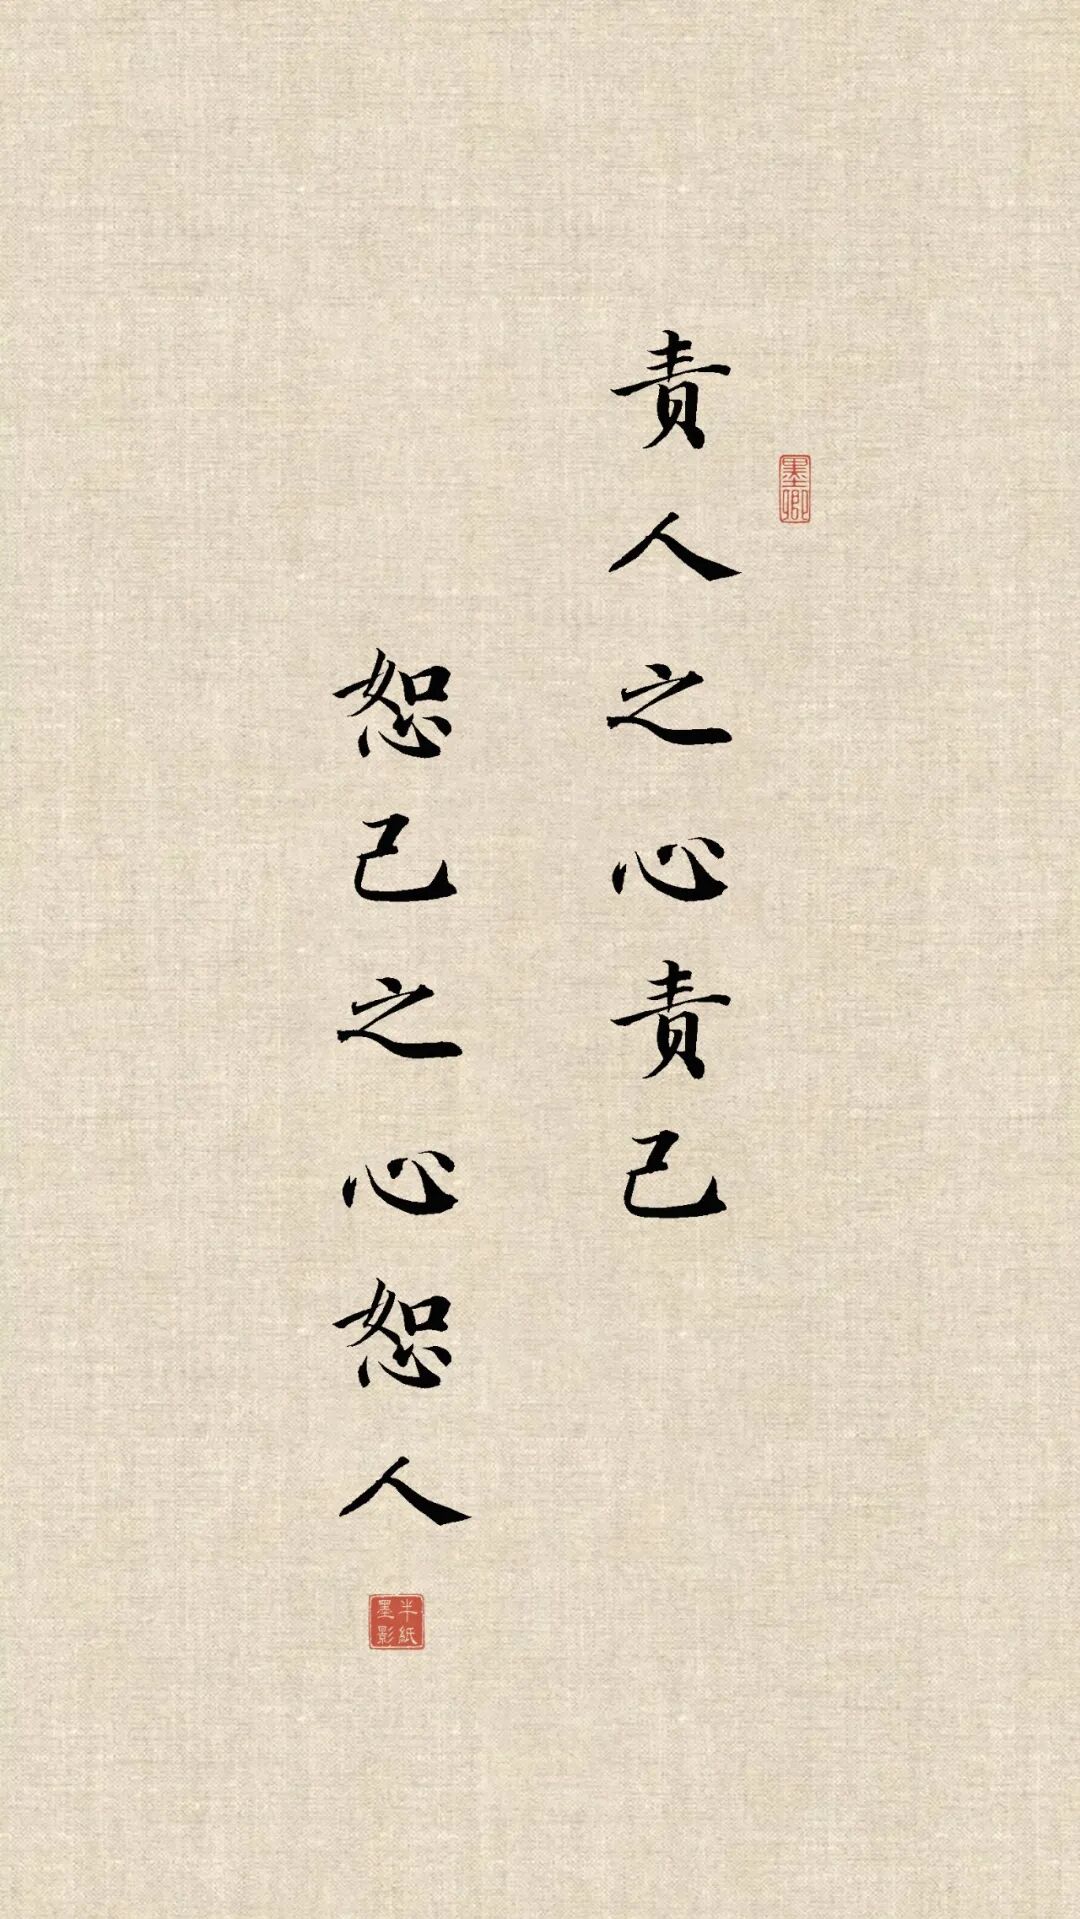 責人之心責己
恕己之心恕人
墨卿
半紙墨影